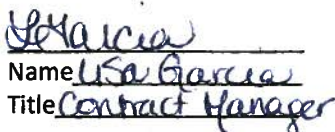 LGarcia
Name Lisa Garcia
Title Contract Manager